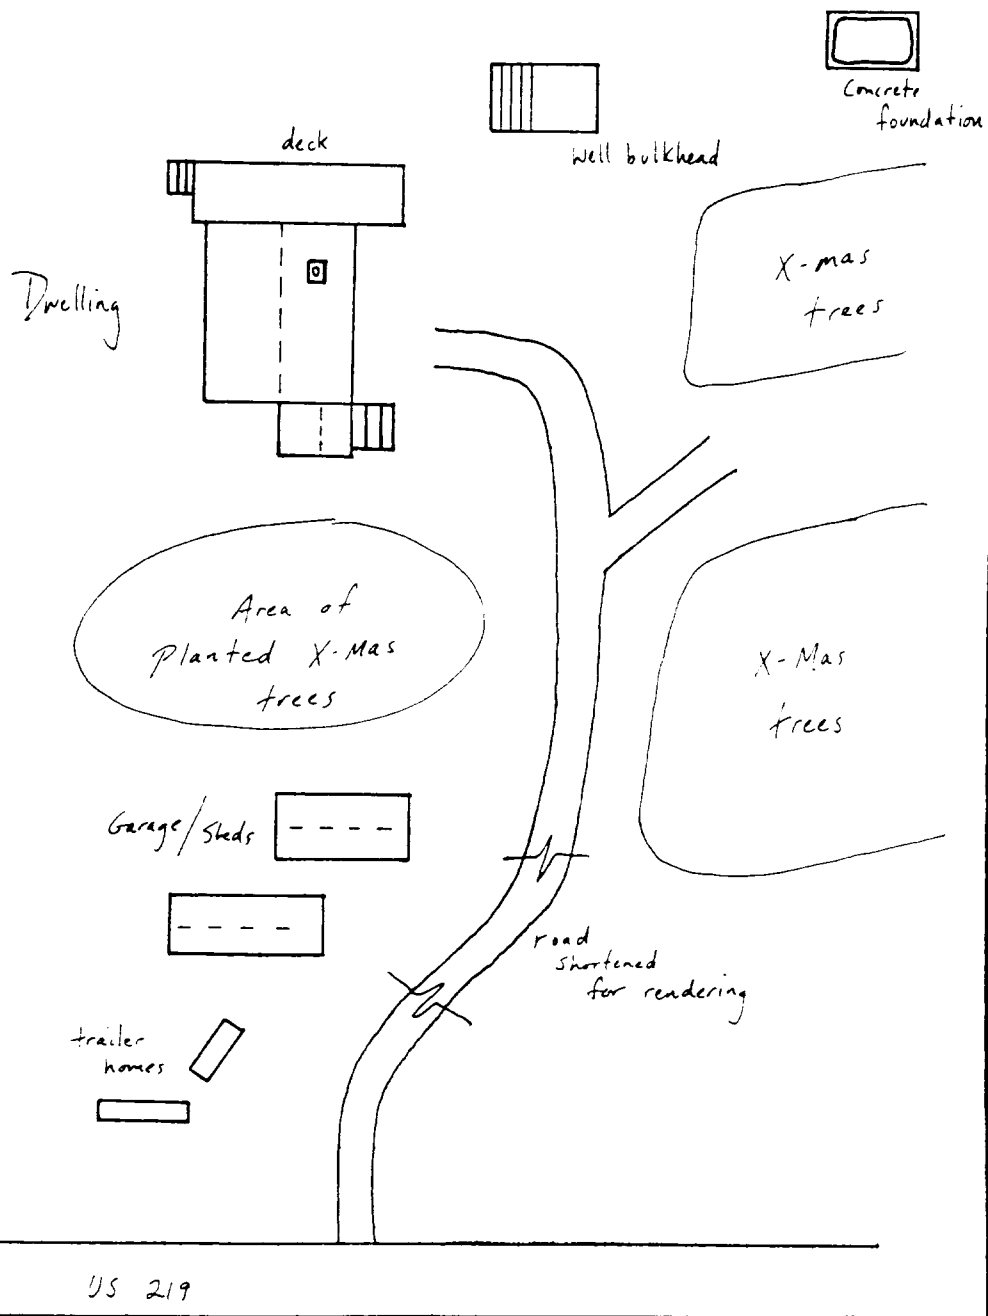 Concrete
foundation
well bulkhead
deck
X-mas
trees
Dwelling
Area of
Planted X-Mas
trees
X-Mas
trees
Garage/Sheds
road
shortened
for rendering
trailer
homes
US 219